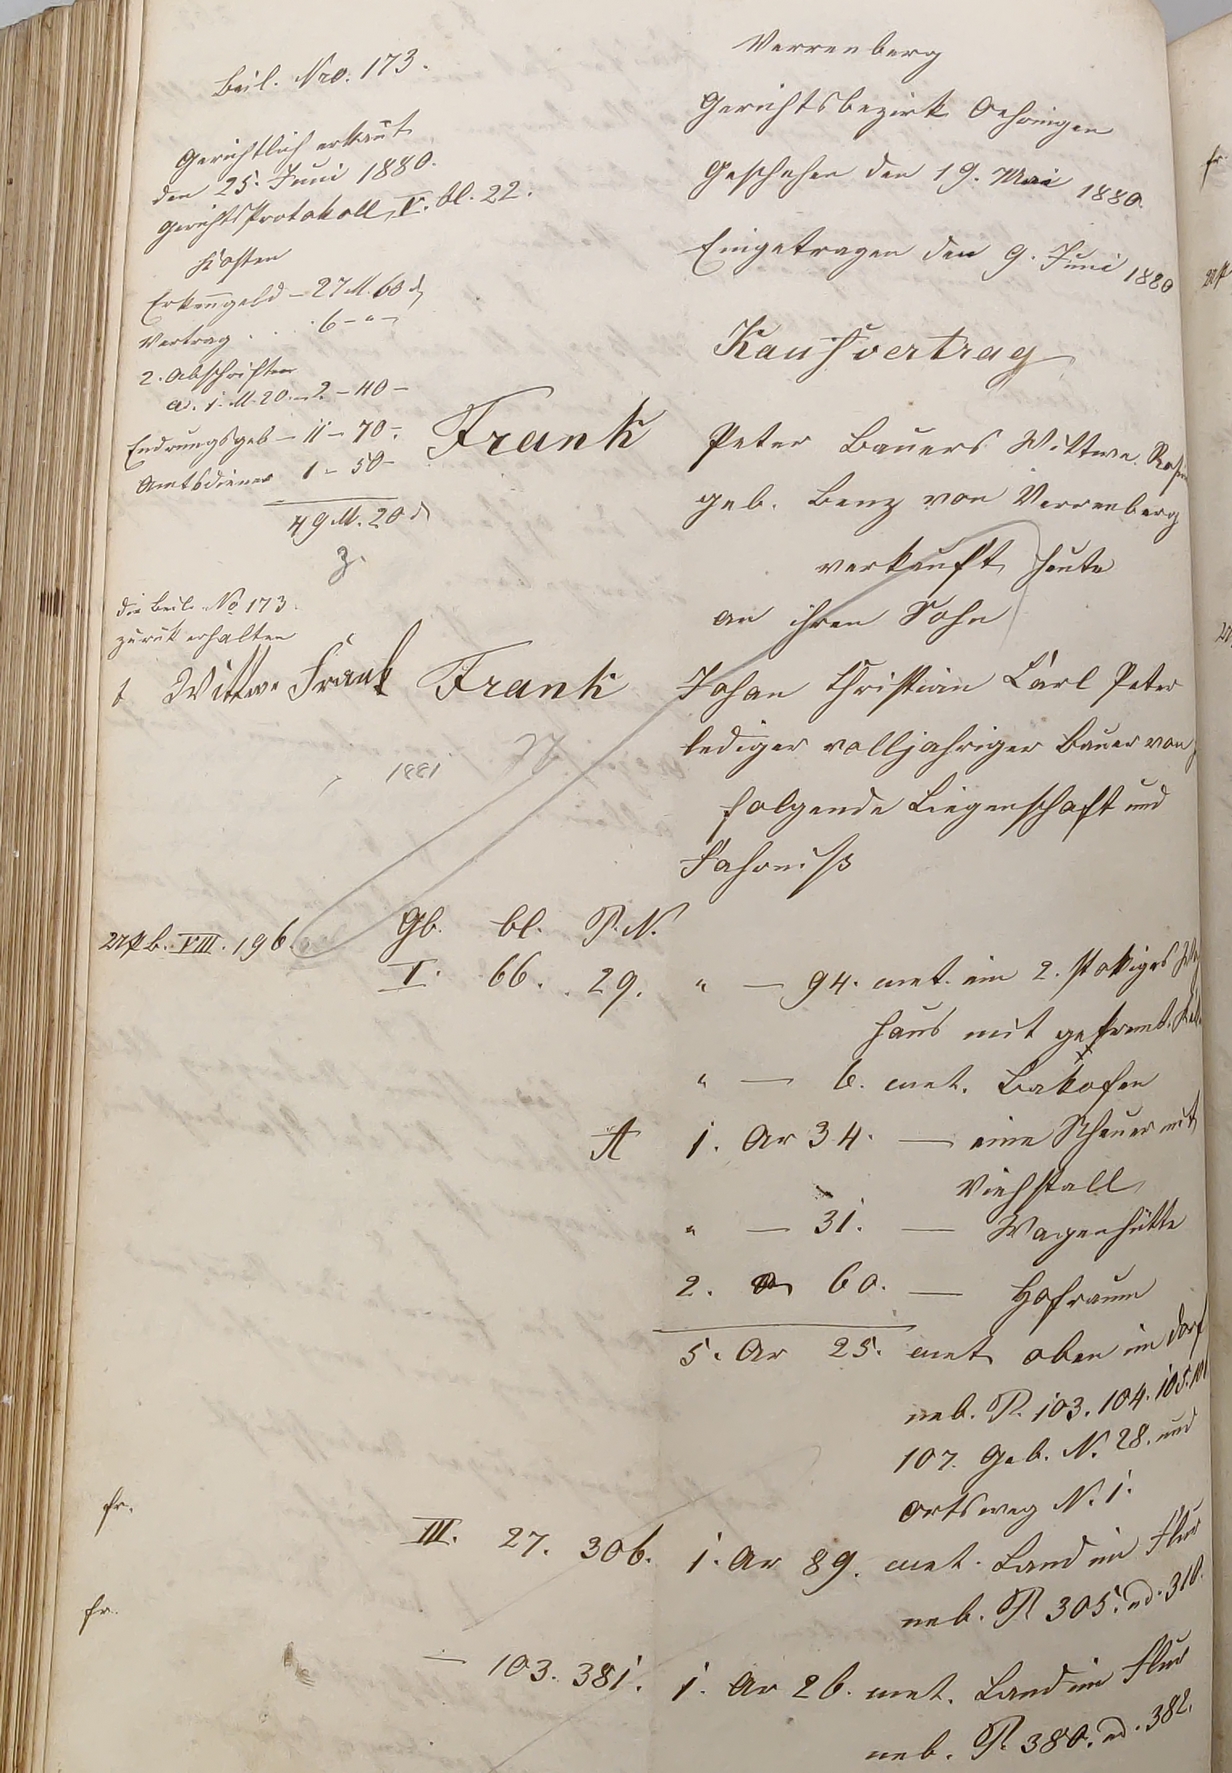 Beil. Nro. 173.
Gerichtlich erkant
den 25. Juni 1880.
Gerichtsprotokoll, V. bl. 22.
Kosten
Erkenngeld – 27 M. 60 d
Vertrag . . 6 – " –
2. Abschriften
a. 1. M. 20. – 2. – 40 –
– 11 – 70 –.
Amtsdiener 1 – 50 –
49 M. 20 d
z.
die Beil. No 173.
zurük erhalten
t Wittwe Frank
1881
Verrenberg
Gerichtsbezirk Oehringen
Geschehen den 19. Mai 1880.
Eingetragen den 9. Juni 1880
Kaufvertrag
Frank Peter Bauers Wittwe Rosin
geb. Benz von Verrenberg
verkauft heute
an ihren Sohn
Frank Johan Christian Carl Peter
lediger volljahriger Bauer von
folgende Liegenschaft und
Fahrniß
Gb. bl. P. N.
Upb. VIII. 196. I. 66. 29. " – 94. met. ein 2. stokiges
Haus mit
" — 6. met. Bakofen
A 1. Ar 34. — eine Scheuer mit
Viehstall
" — 31. — Wagenhütte
2. Ar 60. — Hofraum
5. Ar 25. met oben im Dorf
neb. P. 103. 104. 105.
107. Geb. N. 28. und
Ortsweg N. 1.
fr. III. 27. 306. 1. Ar 89. met. Land im Flur
neb. P. 305. nd. 310.
fr. — 103. 381. 1. Ar 26. met. Land im Flur
neb. P. 380. nd. 382.